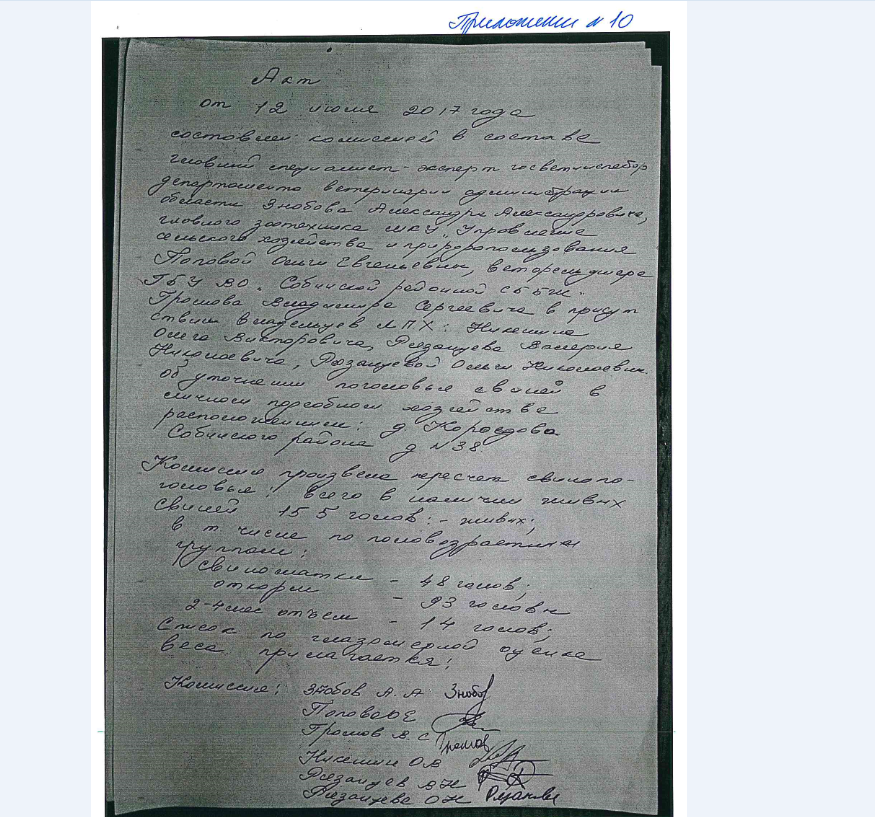 Приложение № 10
Акт
от 12 июля 2017 года
составлен комиссией в составе
главный специалист-эксперт госветинспектор
департамента ветеринарии администрации
области Знобова Александра Александровича,
главного зоотехника МКУ "Управление
сельского хозяйства и природопользования
Поповой Ольги Евгеньевны, ветфельдшера
ГБУ ВО. Собинской районной СББЖ.
Громова Владимира Сергеевича в присут
ствии Владельцев ЛПХ: Никешина
Олега Викторовича, Рязанцева Валерия
Николаевича, Рязанцевой Ольги Николаевны.
об уточнении поголовья свиней в
личном подсобном хозяйстве
расположенном: д
Собинского района д №38
Комиссия произвела пересчет свинопо-
головья: всего в наличии живых
свиней 155 голов: - живых;
в т. числе по половозрастным
группам:
свиноматки - 48 голов;
откорм - 93 головы
2-4 мес отъем - 14 голов;
Список по глазомерной оценке
веса прилагается:
Комиссия: Знобов А. А Знобов
Попова О Е
Громов В. С Громов
Никешин О.В
Рязанцев В Н
Рязанцева О Н